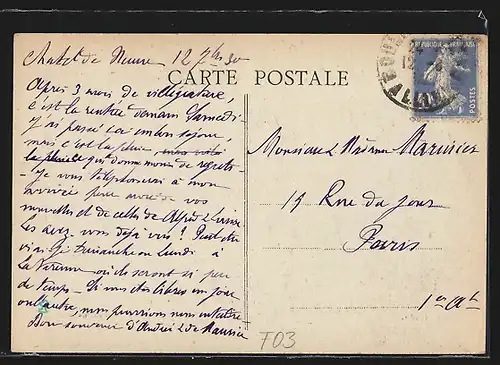 12 7bre 30
CARTE POSTALE
REPUBLIQUE FRANÇAISE
POSTES
Après 3 mois de villégiature,
c'est la rentrée demain Samedi
J'ai passé un bon séjour
mais c'est la pluie
la pluie qui donne moins de regrets
Je vous téléphonerai à mon
arrivée pour avoir de vos
nouvelles et de celles de
Les avez vous déjà vus ? Peut être
Dimanche ou Lundi à
La Varenne où ils seront si peu
de temps. Si vous êtes libres un jour
ou l'autre, nous pourrions nous entendre
Bon souvenir d'André & de Maurice
Monsieur & Madame
15 Rue du Jour
Paris
1er Art
F03